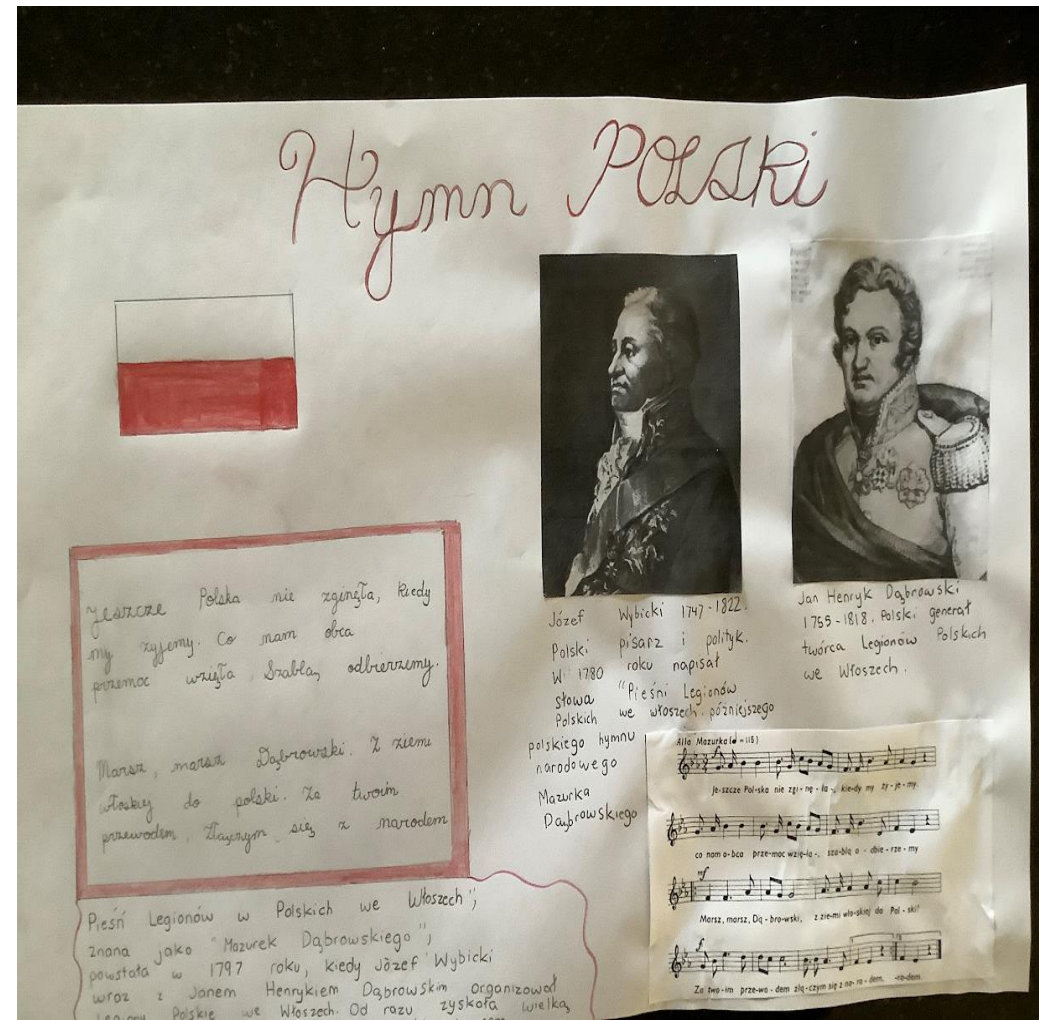 Hymn POLSKi
Jeszcze Polska nie zginęła, kiedy
my żyjemy. Co nam obca
przemoc wzięła, Szablą odbierzemy.
Marsz, marsz Dąbrowski. Z ziemi
włoskiej do polski. Za twoim
przewodem, złączym się z narodem
Józef Wybicki 1747-1822.
Polski pisarz i polityk.
W 1780 roku napisał
słowa "Pieśni Legionów
Polskich we włoszech. późniejszego
polskiego hymnu
narodowego
Mazurka
Dąbrowskiego
Jan Henryk Dąbrowski
1755-1818. Polski generał
twórca Legionów Polskich
we Włoszech.
Alla Mazurka
Je-szcze Pol-ska nie zgi-nę-ła-, kie-dy my ży-je-my.
co nam o-bca prze-moc wzię-ła-, sza-blą o-dbie-rze-my
mf
Marsz, marsz, Dą-bro-wski, z zie-mi wło-skiej do Pol-ski!
f
Za two-im prze-wo-dem złą-czym się z na-ro-dem. -rodem.
Pieśń Legionów w Polskich we Włoszech",
znana jako "Mazurek Dąbrowskiego",
powstała w 1797 roku, kiedy Józef Wybicki
wraz z Janem Henrykiem Dąbrowskim organizował
Legiony Polskie we Włoszech. Od razu zyskała wielką